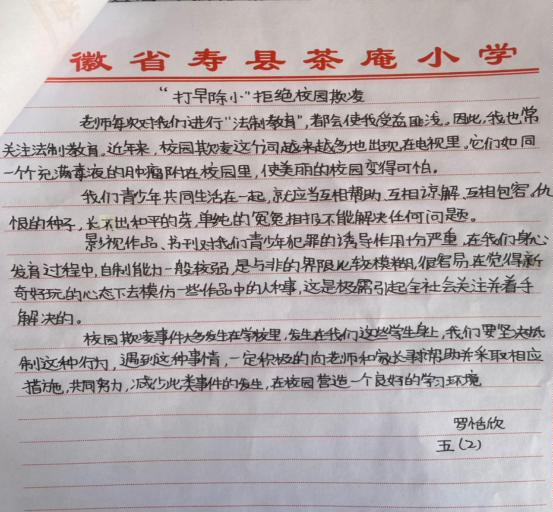 徽省寿县茶庵小学
“打早除小”拒绝校园欺凌
老师每次对我们进行“法制教育”,都会使我受益匪浅。因此,我也常
关注法制教育。近年来,校园欺凌这个词越来越多地出现在电视里。它们如同
一个个充满毒液的肿瘤附在校园里,使美丽的校园变得可怕。
我们青少年共同生活在一起,就应当互相帮助、互相谅解、互相包容。仇
恨的种子,长不出和平的芽,单纯的冤冤相报不能解决任何问题。
影视作品、书刊对我们青少年犯罪的诱导作用十分严重,在我们身心
发育过程中,自制能力一般较弱,是与非的界限比较模糊,很容易在觉得新
奇好玩的心态下去模仿一些作品中的人和事,这是极需引起全社会关注并着手
解决的。
校园欺凌事件大多发生在学校里,发生在我们这些学生身上,我们要坚决抵
制这种行为,遇到这种事情,一定积极的向老师和家长寻求帮助并采取相应
措施,共同努力,减少此类事件的发生,在校园营造一个良好的学习环境
罗恬欣
五(2)